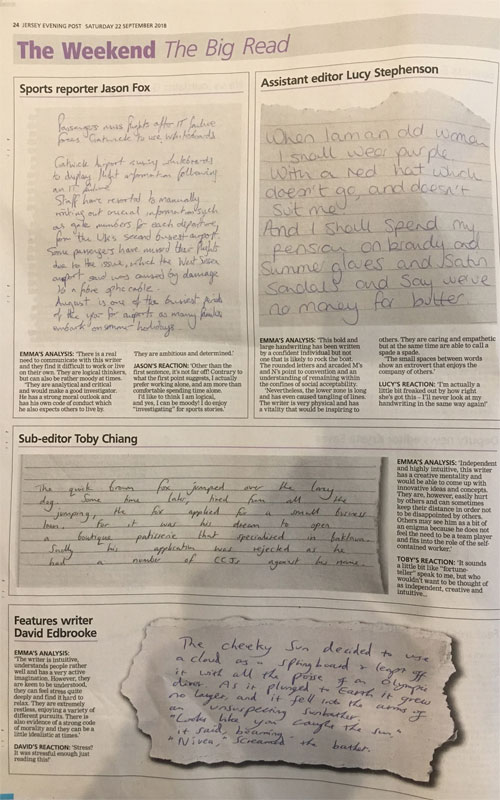 24 JERSEY EVENING POST SATURDAY 22 SEPTEMBER 2018
The Weekend The Big Read
Sports reporter Jason Fox
Passengers miss flights after IT failure
forces Gatwick to use whiteboards
Gatwick Airport is using whiteboards
to display flight information following
an IT failure
Staff have resorted to manually
writing out crucial information such
as gate numbers for each departure
from the UK's second busiest airport.
Some passengers have missed their flights
due to the issue, which the West Sussex
airport said was caused by damage
to a fibre optic cable.
August is one of the busiest periods
of the year for airports as many families
embark on summer holidays.
EMMA'S ANALYSIS: 'There is a real
need to communicate with this writer
and they find it difficult to work or live
on their own. They are logical thinkers,
but can also be rather moody at times.
They are analytical and critical
and would make a good investigator.
He has a strong moral outlook and
has his own code of conduct which
he also expects others to live by.
They are ambitious and determined.'
JASON'S REACTION: 'Other than the
first sentence, it's not far off! Contrary to
what the first point suggests, I actually
prefer working alone, and am more than
comfortable spending time alone.
I'd like to think I am logical,
and yes, I can be moody! I do enjoy
"investigating" for sports stories.'
Assistant editor Lucy Stephenson
When I am an old woman
I shall wear purple
With a red hat which
doesn't go, and doesn't
suit me
And I shall spend my
pension on brandy and
summer gloves and satin
sandals and say we've
no money for butter.
EMMA'S ANALYSIS: 'This bold and
large handwriting has been written
by a confident individual but not
one that is likely to rock the boat.
The rounded letters and arcaded M's
and N's point to convention and an
understanding of remaining within
the confines of social acceptability.
Nevertheless, the lower zone is long
and has even caused tangling of lines.
The writer is very physical and has
a vitality that would be inspiring to
others. They are caring and empathetic
but at the same time are able to call a
spade a spade.
'The small spaces between words
show an extrovert that enjoys the
company of others.'
LUCY'S REACTION: 'I'm actually a
little bit freaked out by how right
she's got this – I'll never look at my
handwriting in the same way again!'
Sub-editor Toby Chiang
The quick brown fox jumped over the lazy
dog. Some time later, tired from all the
jumping, the fox applied for a small business
loan. For it was his dream to open
a boutique patisserie that specialised in
Sadly his application was rejected as he
had a number of CCJs against his name.
EMMA'S ANALYSIS: 'Independent
and highly intuitive, this writer
has a creative mentality and
would be able to come up with
innovative ideas and concepts.
They are, however, easily hurt
by others and can sometimes
keep their distance in order not
to be disappointed by others.
Others may see him as a bit of
an enigma because he does not
feel the need to be a team player
and fits into the role of the self-
contained worker.'
TOBY'S REACTION: 'It sounds
a little bit like "fortune-
teller" speak to me, but who
wouldn't want to be thought of
as independent, creative and
intuitive...
Features writer
David Edbrooke
EMMA'S ANALYSIS:
'The writer is intuitive,
understands people rather
well and has a very active
imagination. However, they
are keen to be understood,
they can feel stress quite
deeply and find it hard to
relax. They are extremely
restless, enjoying a variety of
different pursuits. There is
also evidence of a strong code
of morality and they can be a
little idealistic at times.'
DAVID'S REACTION: 'Stress?
It was stressful enough just
reading this!'
The cheeky Sun decided to use
a cloud as a springboard & leapt off
it with all the poise of an Olympic
diver. As it plunged to Earth it grew
no larger and it fell into the arms of
an unsuspecting sunbather.
"Looks like you caught the sun"
it said, beaming.
"Nivea," screamed the bather.